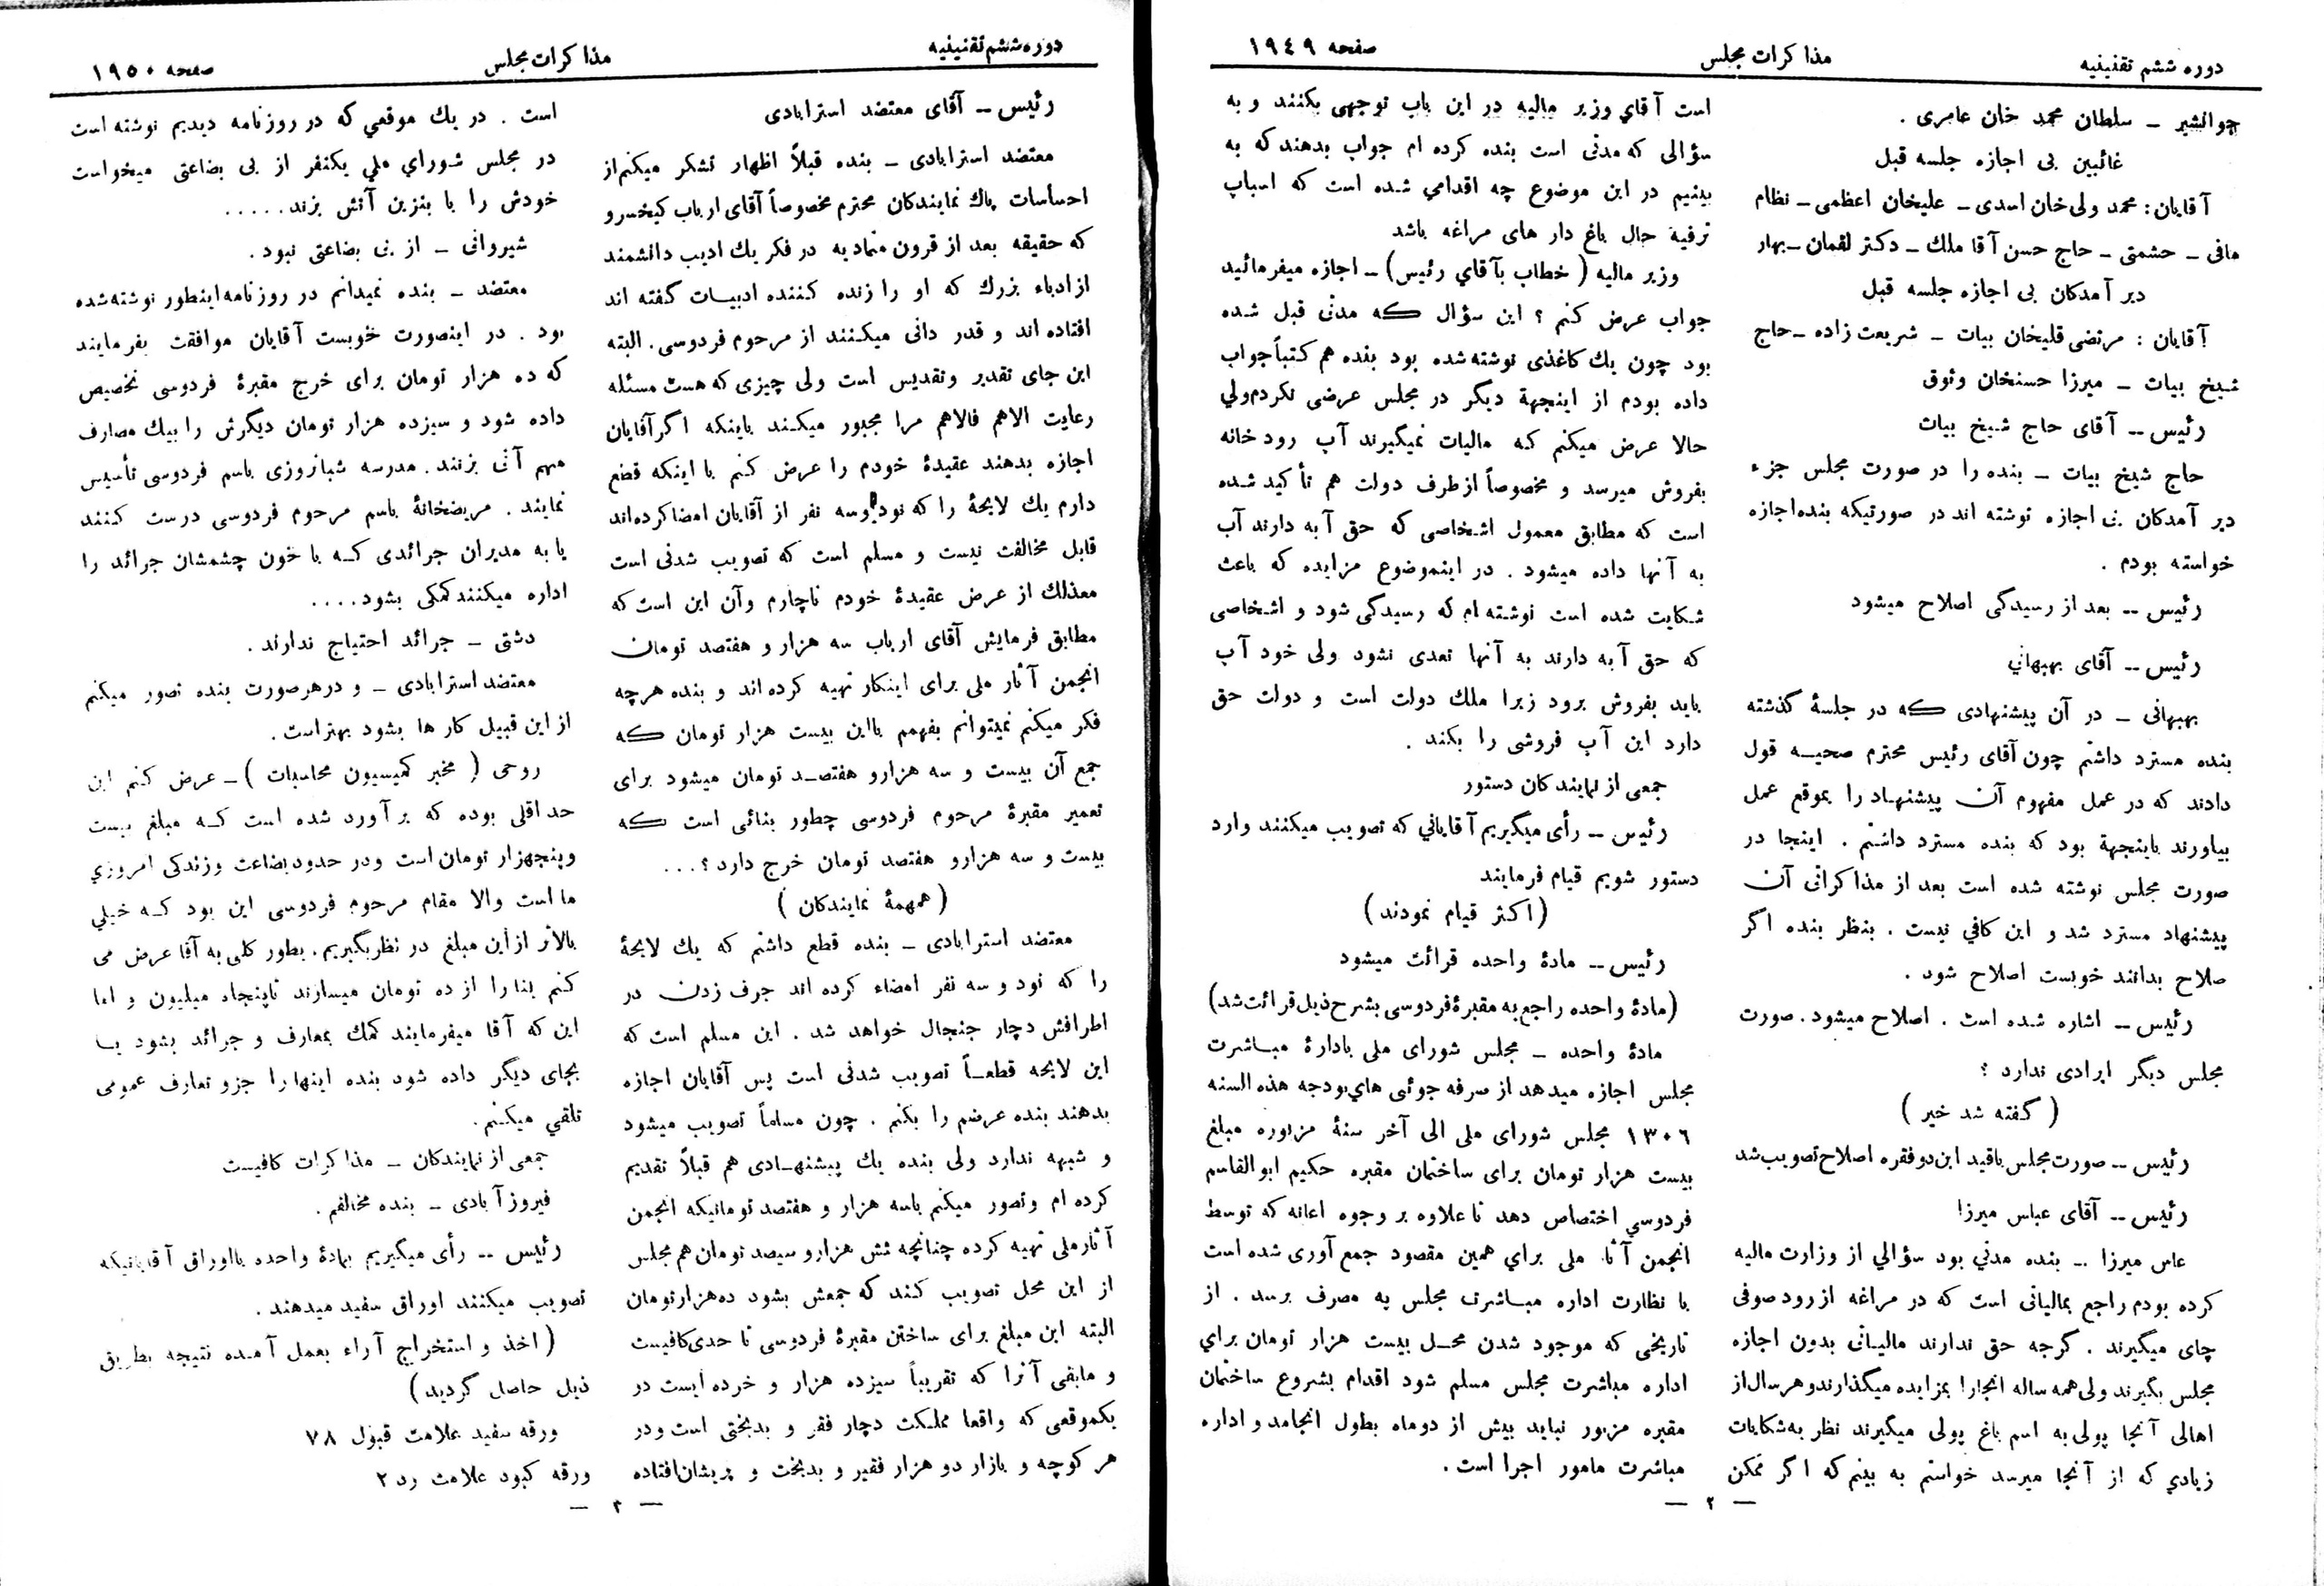 دوره ششم تقنینیه
مذاکرات مجلس
صفحه ۱۹۴۹
جوانشیر ــ سلطان محمد خان عامری .
غائبین بی اجازه جلسه قبل
آقایان : محمد ولی خان اسدی ــ علیخان اعظمی ــ نظام
مافی ــ حشمتی ــ حاج حسن آقا ملك ــ دکتر لقمان ــ بهار
دیر آمدکان بی اجازه جلسه قبل
آقایان : مرتضی قلیخان بیات ــ شریعت زاده ــ حاج
شیخ بیات ــ میرزا حسنخان وثوق
رئیس ــ آقای حاج شیخ بیات
حاج شیخ بیات ــ بنده را در صورت مجلس جزء
دیر آمدکان بی اجازه نوشته اند در صورتیکه بنده اجازه
خواسته بودم .
رئیس ــ بعد از رسیدگی اصلاح میشود
رئیس ــ آقای بهبهانی
بهبهانی ــ در آن پیشنهادی که در جلسۀ گذشته
بنده مسترد داشتم چون آقای رئیس محترم صحیه قول
دادند که در عمل مفهوم آن پیشنهاد را بموقع عمل
بیاورند باینجهة بود که بنده مسترد داشتم . اینجا در
صورت مجلس نوشته شده است بعد از مذاکراتی آن
پیشنهاد مسترد شد و این کافی نیست . بنظر بنده اگر
صلاح بدانند خوبست اصلاح شود .
رئیس ــ اشاره شده است . اصلاح میشود . صورت
مجلس دیگر ایرادی ندارد ؟
( گفته شد خیر )
رئیس ــ صورت مجلس باقید این دو فقره اصلاح تصویب شد
رئیس ــ آقای عباس میرزا
عباس میرزا ــ بنده مدتی بود سؤالی از وزارت مالیه
کرده بودم راجع بمالیاتی است که در مراغه از رود صوفی
چای میگیرند . گرچه حق ندارند مالیاتی بدون اجازه
مجلس بگیرند ولی همه ساله آنجارا بمزایده میگذارند و هر سال از
اهالی آنجا پولی به اسم باغ پولی میگیرند نظر به شکایات
زیادی که از آنجا میرسد خواستم به بینم که اگر ممکن
است آقای وزیر مالیه در این باب توجهی بکنند و به
سؤالی که مدتی است بنده کرده ام جواب بدهند که به
بینیم در این موضوع چه اقدامی شده است که اسباب
ترفیه حال باغ دار های مراغه باشد
وزیر مالیه ( خطاب بآقای رئیس ) ــ اجازه میفرمائید
جواب عرض کنم ؟ این سؤال که مدتی قبل شده
بود چون یك کاغذی نوشته شده بود بنده هم کتباً جواب
داده بودم از اینجهة دیگر در مجلس عرضی نکردم ولی
حالا عرض میکنم که مالیات نمیگیرند آب رود خانه
بفروش میرسد و مخصوصاً از طرف دولت هم تأکید شده
است که مطابق معمول اشخاصی که حق آبه دارند آب
به آنها داده میشود . در اینموضوع مزایده که باعث
شکایت شده است نوشته ام که رسیدگی شود و اشخاصی
که حق آبه دارند به آنها تعدی نشود ولی خود آب
باید بفروش برود زیرا ملك دولت است و دولت حق
دارد این آب فروشی را بکند .
جمعی از نمایندکان دستور
رئیس ــ رأی میگیریم آقایانی که تصویب میکنند وارد
دستور شویم قیام فرمایند
( اکثر قیام نمودند )
رئیس ــ مادۀ واحده قرائت میشود
(مادۀ واحده راجع به مقبرۀ فردوسی بشرح ذیل قرائت شد)
مادۀ واحده ــ مجلس شورای ملی بادارۀ مباشرت
مجلس اجازه میدهد از صرفه جوئی های بودجه هذه السنه
۱۳۰۶ مجلس شورای ملی الی آخر سنۀ مزبوره مبلغ
بیست هزار تومان برای ساختمان مقبره حکیم ابوالقاسم
فردوسی اختصاص دهد تا علاوه بر وجوه اعانه که توسط
انجمن آثار ملی برای همین مقصود جمع آوری شده است
با نظارت اداره مباشرت مجلس به مصرف برسد . از
تاریخی که موجود شدن محل بیست هزار تومان برای
اداره مباشرت مجلس مسلم شود اقدام بشروع ساختمان
مقبره مزبور نباید بیش از دوماه بطول انجامد و اداره
مباشرت مامور اجرا است .
— ۲ —
دوره ششم تقنینیه
مذاکرات مجلس
صفحه ۱۹۵۰
رئیس ــ آقای معتضد استرابادی
معتضد استرابادی ــ بنده قبلاً اظهار تشکر میکنم از
احساسات پاك نمایندکان محترم مخصوصاً آقای ارباب کیخسرو
که حقیقه بعد از قرون متمادیه در فکر یك ادیب دانشمند
از ادباء بزرك که او را زنده کننده ادبیات گفته اند
افتاده اند و قدر دانی میکنند از مرحوم فردوسی . البته
این جای تقدیر و تقدیس است ولی چیزی که هست مسئله
رعایت الاهم فالاهم مرا مجبور میکند باینکه اگر آقایان
اجازه بدهند عقیدۀ خودم را عرض کنم با اینکه قطع
دارم یك لایحۀ را که نود و سه نفر از آقایان امضا کرده اند
قابل مخالفت نیست و مسلم است که تصویب شدنی است
معذلك از عرض عقیدۀ خودم ناچارم و آن این است که
مطابق فرمایش آقای ارباب سه هزار و هفتصد تومان
انجمن آثار ملی برای اینکار تهیه کرده اند و بنده هرچه
فکر میکنم نمیتوانم بفهمم بااین بیست هزار تومان که
جمع آن بیست و سه هزارو هفتصد تومان میشود برای
تعمیر مقبرۀ مرحوم فردوسی چطور بنائی است که
بیست و سه هزارو هفتصد تومان خرج دارد ؟ . . .
( همهمۀ نمایندکان )
معتضد استرابادی ــ بنده قطع داشتم که یك لایحۀ
را که نود و سه نفر امضاء کرده اند حرف زدن در
اطرافش دچار جنجال خواهد شد . این مسلم است که
این لایحه قطعاً تصویب شدنی است پس آقایان اجازه
بدهند بنده عرضم را بکنم . چون مسلماً تصویب میشود
و شبهه ندارد ولی بنده یك پیشنهادی هم قبلاً تقدیم
کرده ام و تصور میکنم باسه هزار و هفتصد تومانیکه انجمن
آثار ملی تهیه کرده چنانچه شش هزارو سیصد تومان هم مجلس
از این محل تصویب کند که جمعش بشود ده هزار تومان
البته این مبلغ برای ساختن مقبرۀ فردوسی تا حدی کافیست
و مابقی آنرا که تقریباً سیزده هزار و خرده ایست در
یکموقعی که واقعا مملکت دچار فقر و بدبختی است و در
هر کوچه و بازار دو هزار فقیر و بدبخت و پریشان افتاده
است . در یك موقعی که در روزنامه دیدیم نوشته است
در مجلس شورای ملی یکنفر از بی بضاعتی میخواست
خودش را با بنزین آتش بزند . . . . .
شیروانی ــ از بی بضاعتی نبود .
معتضد ــ بنده نمیدانم در روزنامه اینطور نوشته شده
بود . در اینصورت خوبست آقایان موافقت بفرمایند
که ده هزار تومان برای خرج مقبرۀ فردوسی تخصیص
داده شود و سیزده هزار تومان دیگرش را بیك مصارف
مهم آنی بزنند . مدرسه شبانروزی باسم فردوسی تأسیس
نمایند . مریضخانۀ باسم مرحوم فردوسی درست کنند
یا به مدیران جرائدی که با خون چشمشان جرائد را
اداره میکنند کمکی بشود . . . .
دشتی ــ جرائد احتیاج ندارند .
معتضد استرابادی ــ و در هر صورت بنده تصور میکنم
از این قبیل کار ها بشود بهتر است .
روحی ( مخبر کمیسیون محاسبات ) ــ عرض کنم این
حد اقلی بوده که بر آورد شده است که مبلغ بیست
و پنجهزار تومان است و در حدود بضاعت و زندکی امروزی
ما است والا مقام مرحوم فردوسی این بود که خیلی
بالاتر از این مبلغ در نظر بگیریم . بطور کلی به آقا عرض می
کنم بنا را از ده تومان میسازند تا پنجاه میلیون و اما
این که آقا میفرمایند کمك بمعارف و جرائد بشود یا
بجای دیگر داده شود بنده اینها را جزو تعارف عمومی
تلقی میکنم .
جمعی از نمایندکان ــ مذاکرات کافیست
فیروز آبادی ــ بنده مخالفم .
رئیس ــ رأی میگیریم بمادۀ واحده بااوراق آقایانیکه
تصویب میکنند اوراق سفید میدهند .
( اخذ و استخراج آراء بعمل آمده نتیجه بطریق
ذیل حاصل گردید )
ورقه سفید علامت قبول ۷۸
ورقه کبود علامت رد ۲
— ۳ —